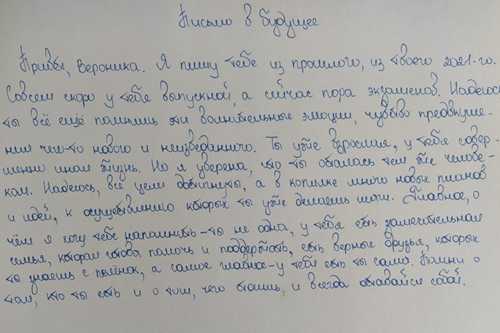 Письмо в будущее
Привет, Вероника. Я пишу тебе из прошлого, из твоего 2021-го.
Совсем скоро у тебя выпускной, а сейчас пора экзаменов. Надеюсь,
ты всё ещё помнишь эти волнительные эмоции, чувство предвкуше-
ния чего-то нового и неизведанного. Ты уже взрослая, у тебя совер-
шенно иная жизнь. Но я уверена, что ты осталась тем же челове-
ком. Надеюсь, все цели достигнуты, а в копилке много новых планов
и идей, к осуществлению которых ты уже делаешь шаги. Главное, о
чём я хочу тебе напомнить-ты не одна, у тебя есть замечательная
семья, которая готова помочь и поддержать, есть верные друзья, которых
ты знаешь с пелёнок, а самое главное-у тебя есть ты сама. Помни о
том, кто ты есть и о том, чего стоишь, и всегда оставайся собой.